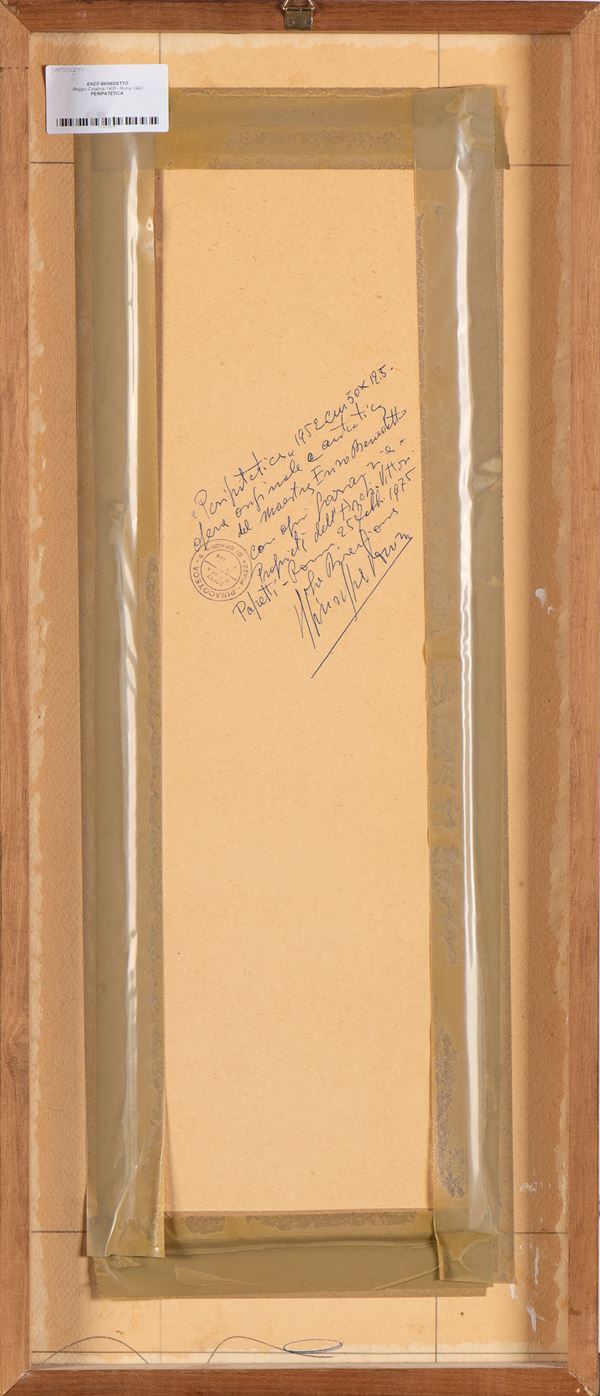 ENZO BENEDETTO
Reggio Calabria 1905 - Roma 1993
PERIPATETICA
"Peripatetica" 1952 cm 50x12.5-
opera originale e autentica
del maestro Enzo Benedetto
con ogni garanzia-
Proprietà dell'Arch. Vittori
Papetti - Roma 25 febb. 1975
PINACOTECA PIAZZA DI SPAGNA